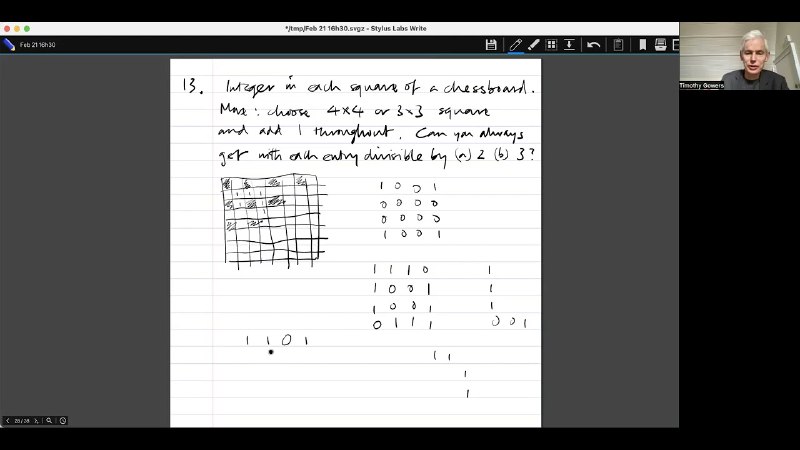 */tmp/Feb 21 16h30.svgz - Stylus Labs Write
Feb 21 16h30
Timothy Gowers
13. Integer in each square of a chessboard.
Move: choose 4×4 or 3×3 square
and add 1 throughout. Can you always
get with each entry divisible by (a) 2 (b) 3?
1 0 0 1
0 0 0 0
0 0 0 0
1 0 0 1
1 1 1 0 1
1 0 0 1 1
1 0 0 1 1
0 1 1 1 0 0 1
1 1 0 1
1 1
1
1